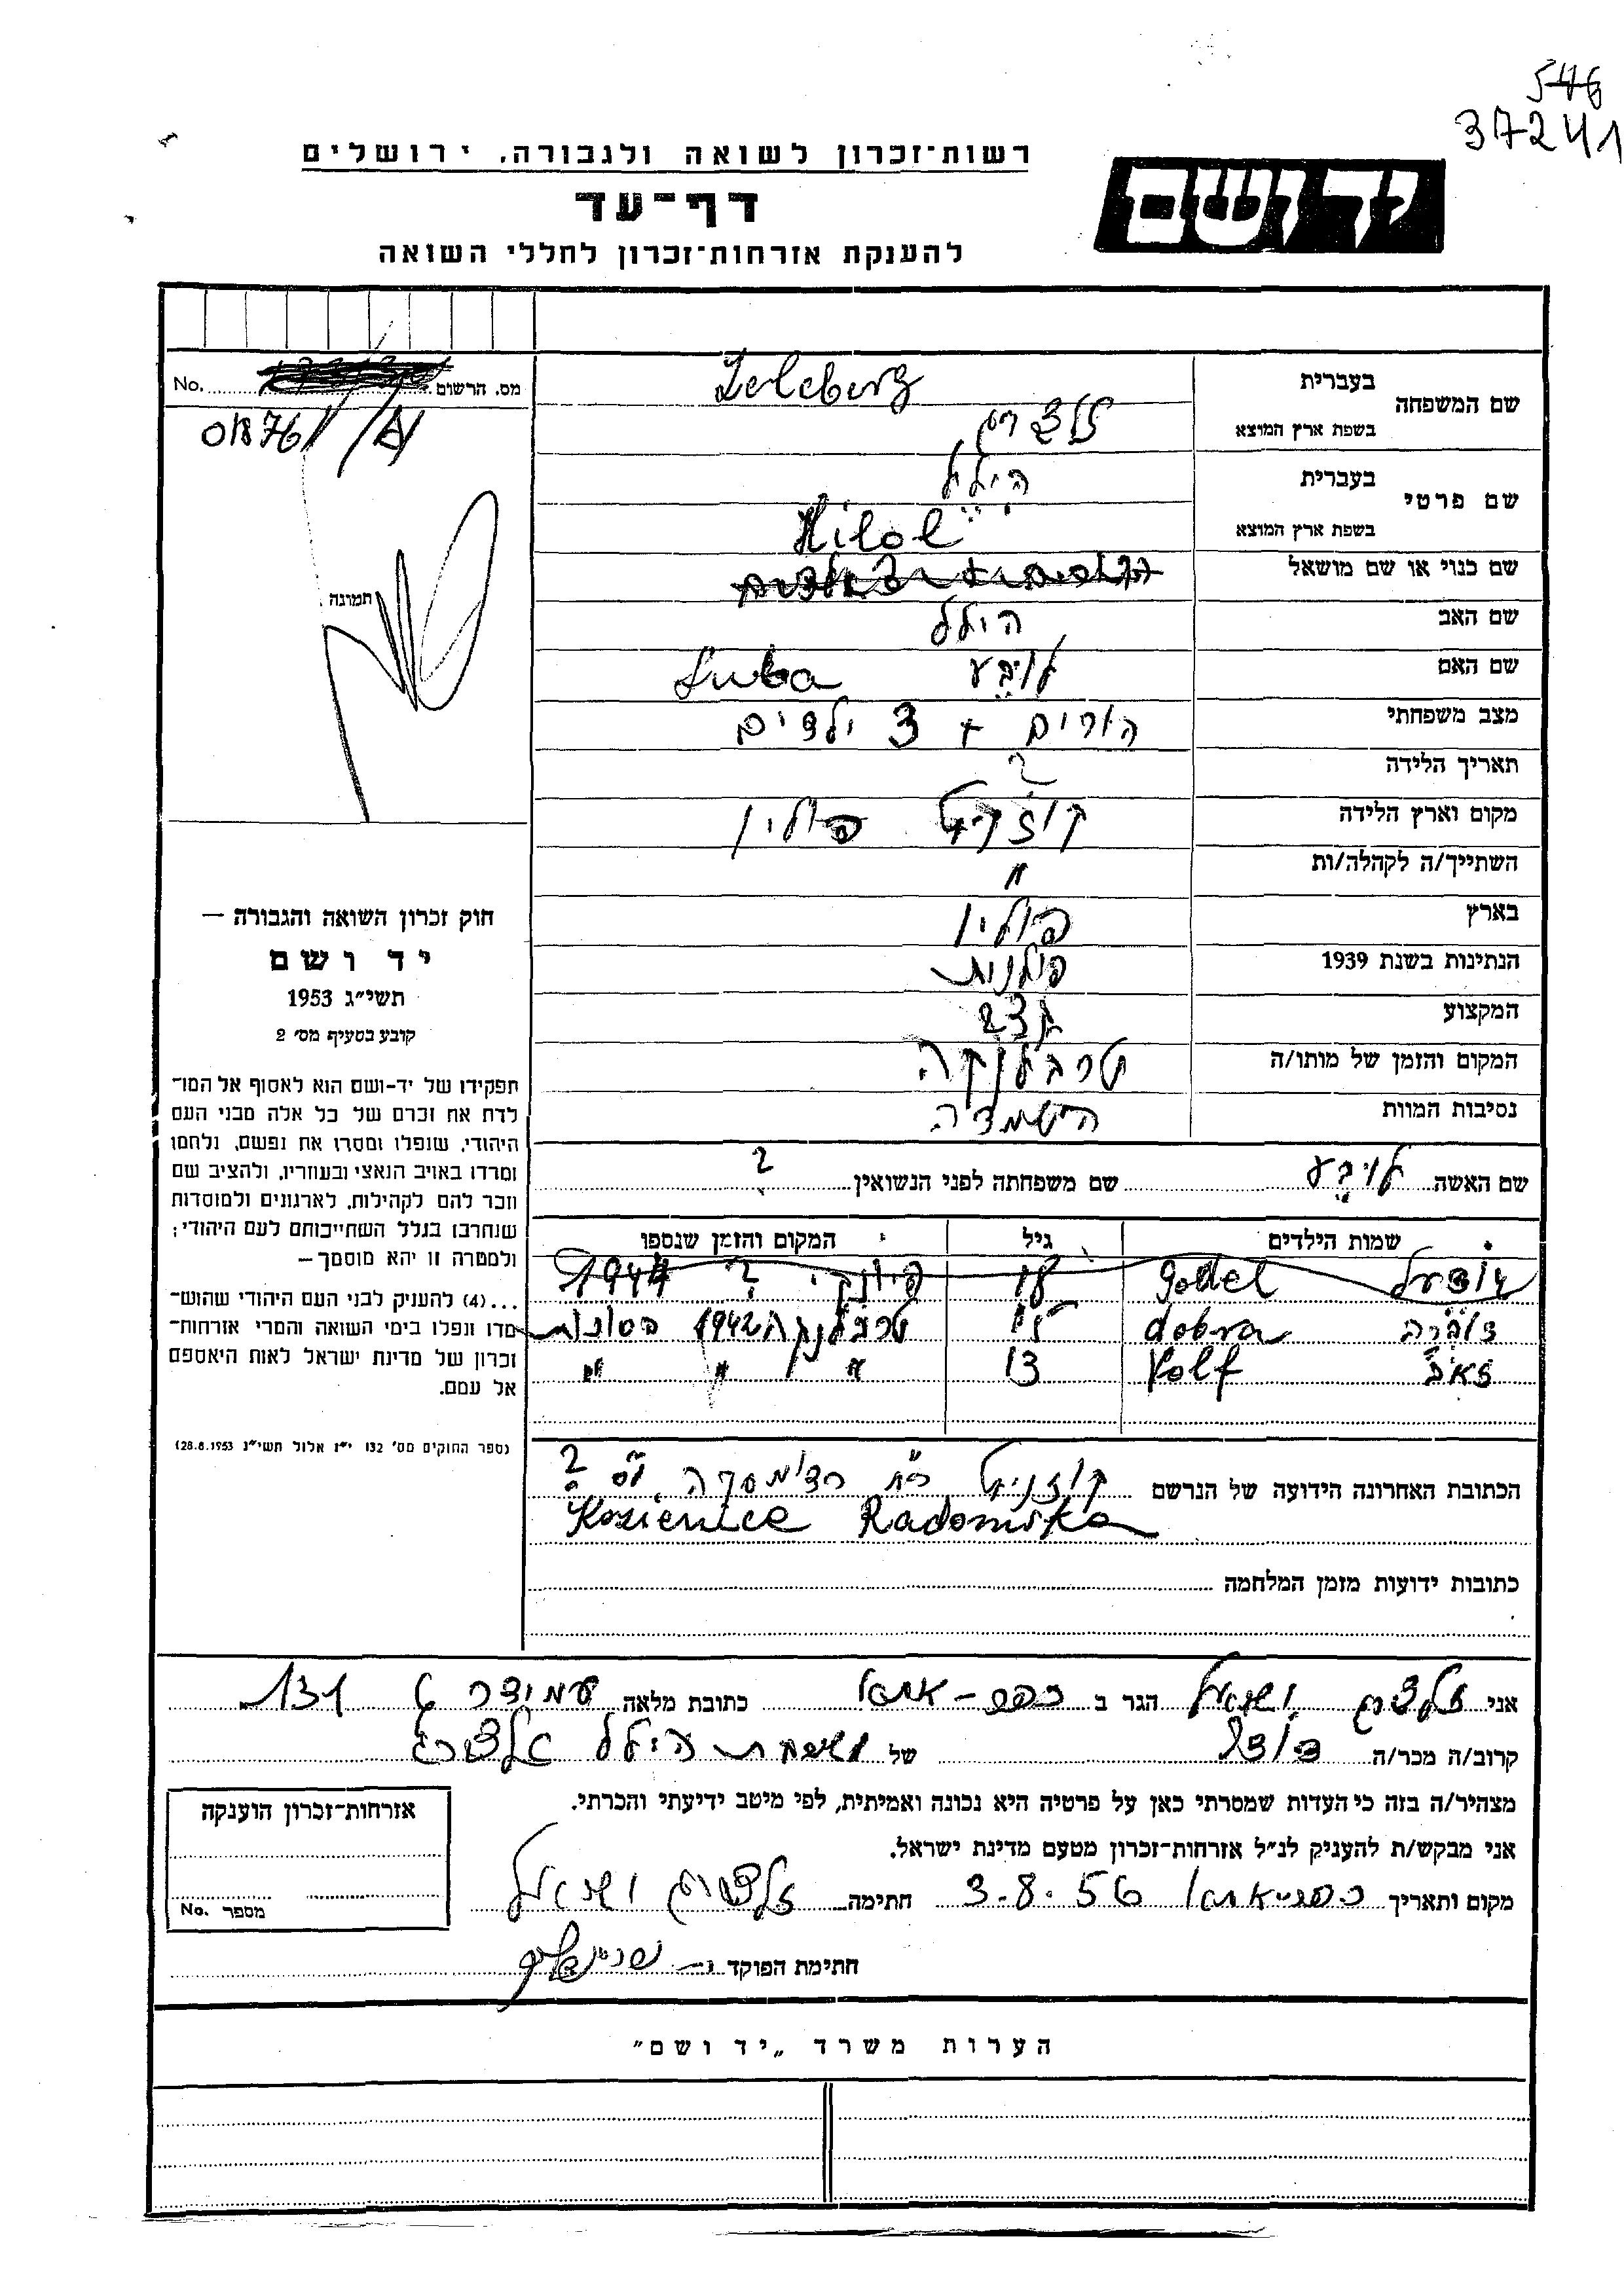 546
37241
רשות־זכרון לשואה ולגבורה, ירושלים
דף־עד
להענקת אזרחות־זכרון לחללי השואה
יד ושם
מס. הרשום No.
0187611
תמונה
שם המשפחה
בעברית
בשפת ארץ המוצא
Zelcberg
שם פרטי
בעברית הילל
בשפת ארץ המוצא Hilel
שם כנוי או שם מושאל
שם האב הילל
שם האם לובע Luba
מצב משפחתי הורים + 3 ילדים
תאריך הלידה ?
מקום וארץ הלידה פולין
השתייך/ה לקהלה/ות "
בארץ פולין
הנתינות בשנת 1939 פולנית
המקצוע
המקום והזמן של מותו/ה טרבלנקה
נסיבות המוות השמדה
שם האשה לובע שם משפחתה לפני הנשואין ?
שמות הילדים גיל המקום והזמן שנספו
Godel ? 1944
דוברה dobra טרבלנקה 1942
זאב Volf 13 " " "
הכתובת האחרונה הידועה של הנרשם קוזניץ רח' ?
Kozienice Radomska
כתובות ידועות מזמן המלחמה
חוק זכרון השואה והגבורה —
יד ושם
תשי״ג 1953
קובע בסעיף מס׳ 2
תפקידו של יד-ושם הוא לאסוף אל המו־
לדת את זכרם של כל אלה מבני העם
היהודי, שנפלו ומסרו את נפשם, נלחמו
ומרדו באויב הנאצי ובעוזריו, ולהציב שם
וזכר להם לקהילות, לארגונים ולמוסדות
שנחרבו בגלל השתייכותם לעם היהודי;
ולמטרה זו יהא מוסמך —
...(4) להענק לבני העם היהודי שהוש־
מדו ונפלו בימי השואה והמרי אזרחות־
זכרון של מדינת ישראל לאות היאספם
אל עמם.
(ספר החוקים מס׳ 132 י״ז אלול תשי״ג 28.8.1953)
אני זלצברג הגר ב כפר-אתא כתובת מלאה עמידר 131
קרוב/ה מכר/ה של משפחת הילל זלצברג
מצהיר/ה בזה כי העדות שמסרתי כאן על פרטיה היא נכונה ואמיתית, לפי מיטב ידיעתי והכרתי.
אני מבקש/ת להעניק לנ״ל אזרחות־זכרון מטעם מדינת ישראל.
מקום ותאריך כפר-אתא 3.8.56 חתימה זלצברג
חתימת הפוקד
אזרחות־זכרון הוענקה
מספר No.
הערות משרד „יד ושם״